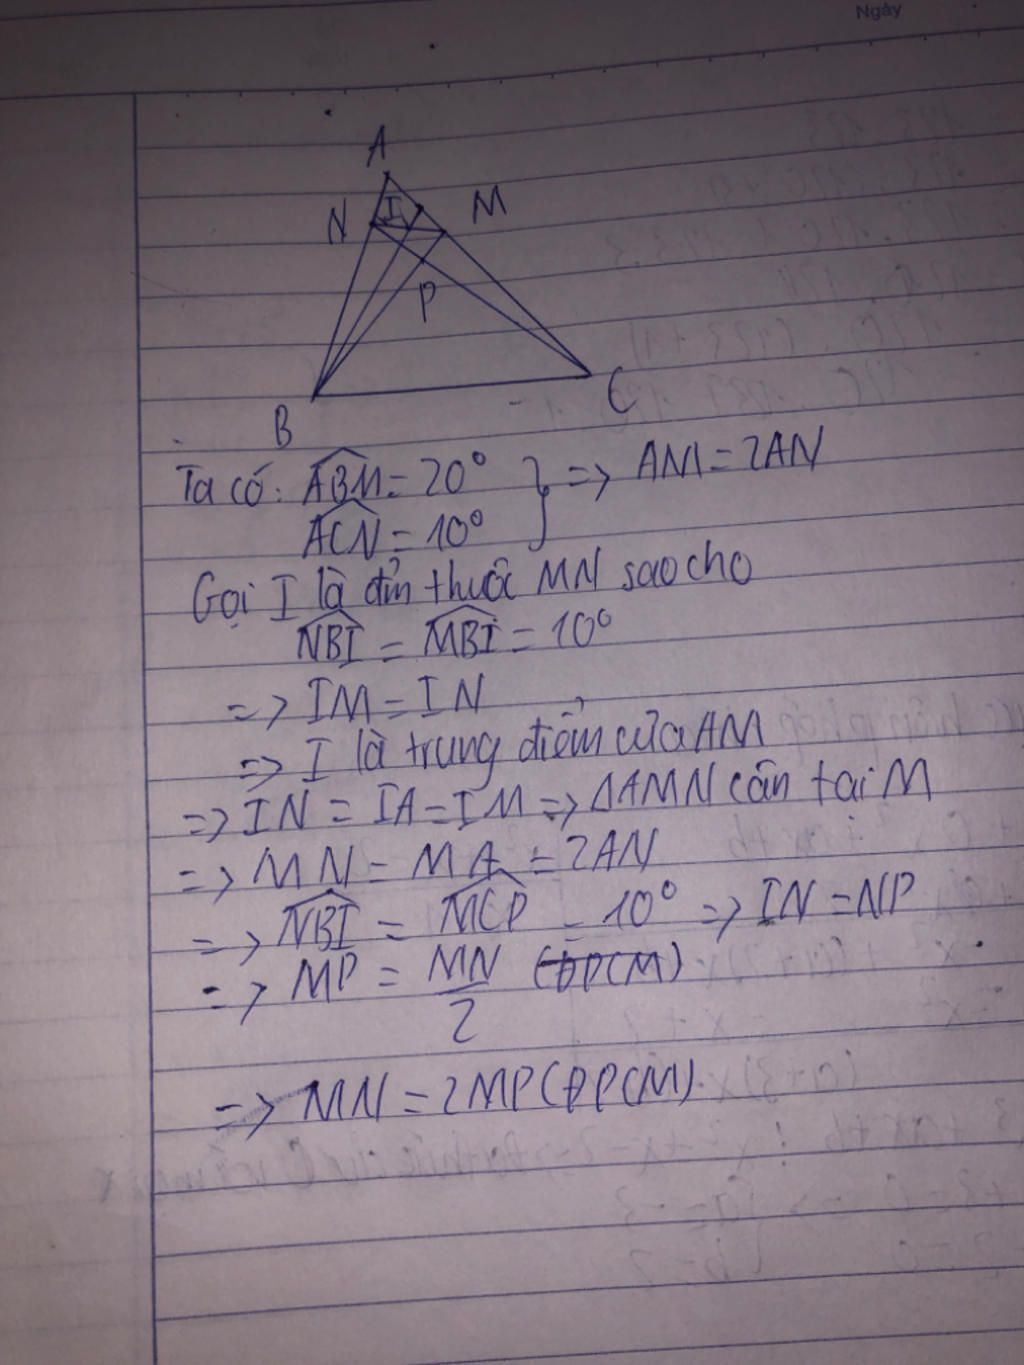 Ngày
A
N I M
P
B C
Ta có: ABM = 20° } => AM = 2AN
ACN = 10°
Gọi I là đỉn thuộc MN sao cho
NBI = MBI = 10°
=> IM = IN
=> I là trung điểm của AM
=> IN = IA = IM => ΔAMN cân tại M
=> MN = MA = 2AN
=> NBI = MCP = 10° => IN = NP
=> MP = MN/2 (ĐPCM)
=> MN = 2MP (ĐPCM)